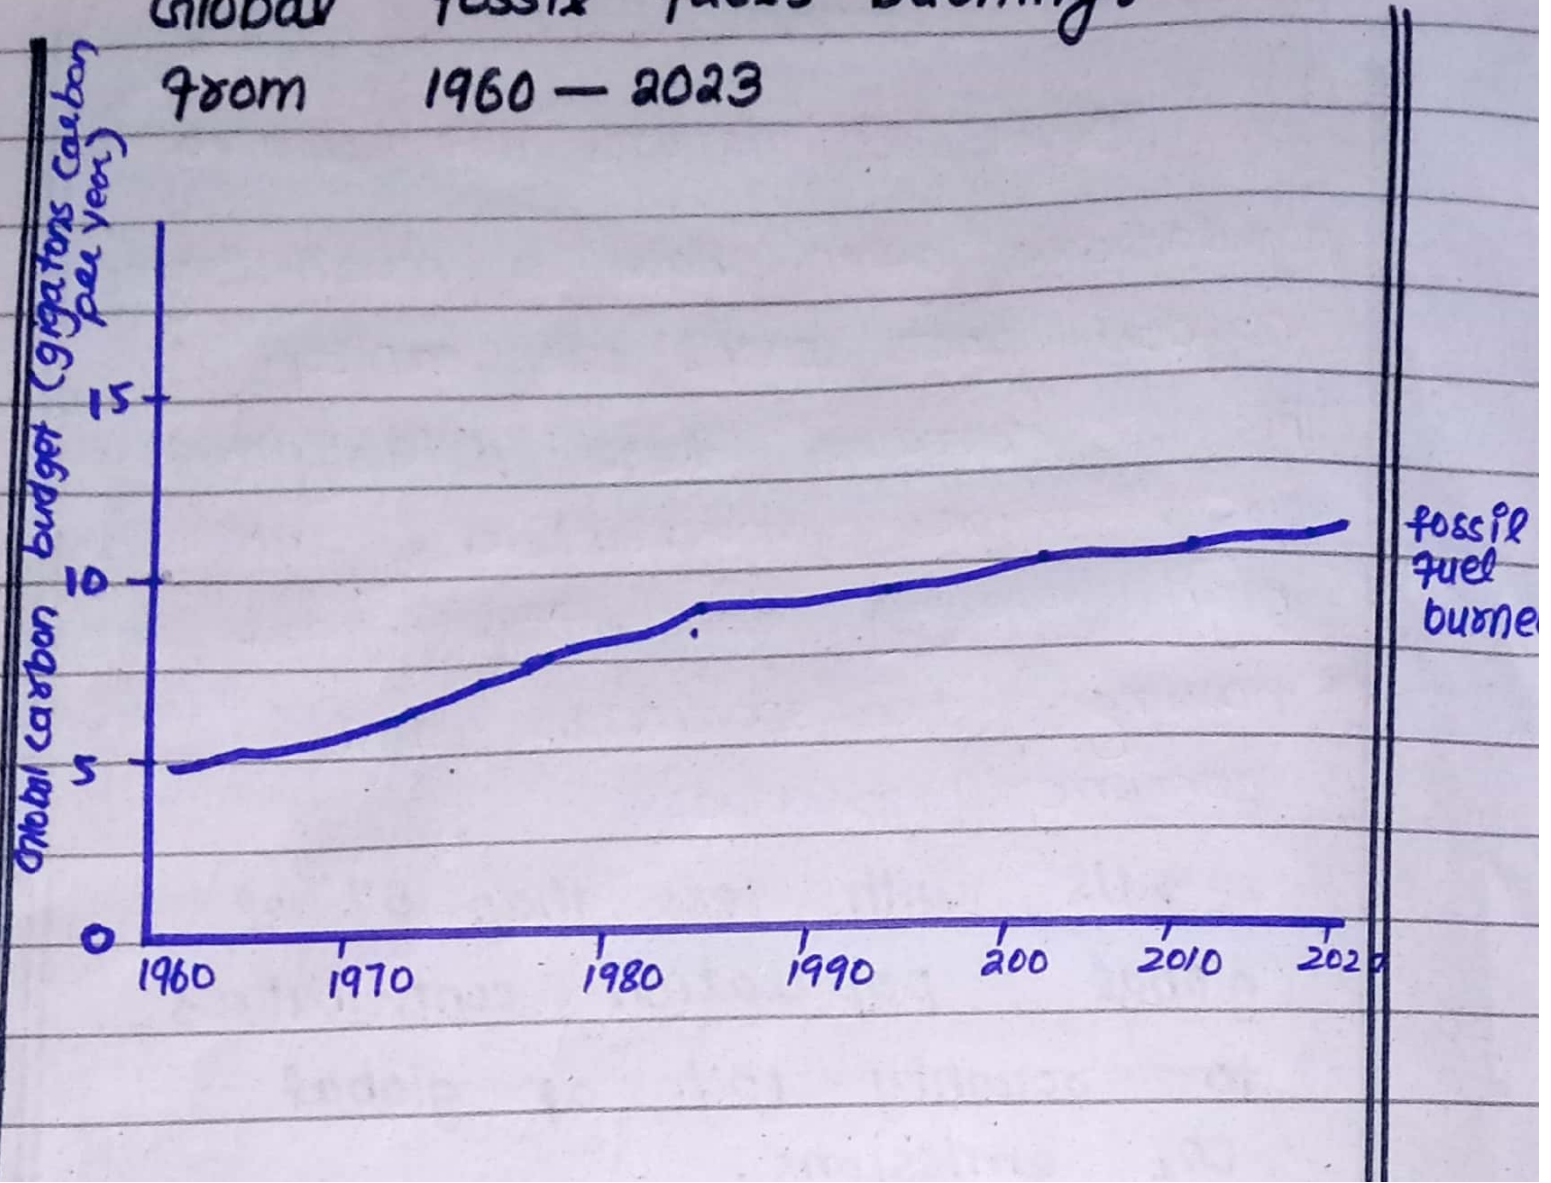 Global fossil fuels burning:
from 1960 — 2023
Global carbon budget (gigatons carbon
per year)
15
10
5
0
1960 1970 1980 1990 200 2010 202
fossil
fuel
burne